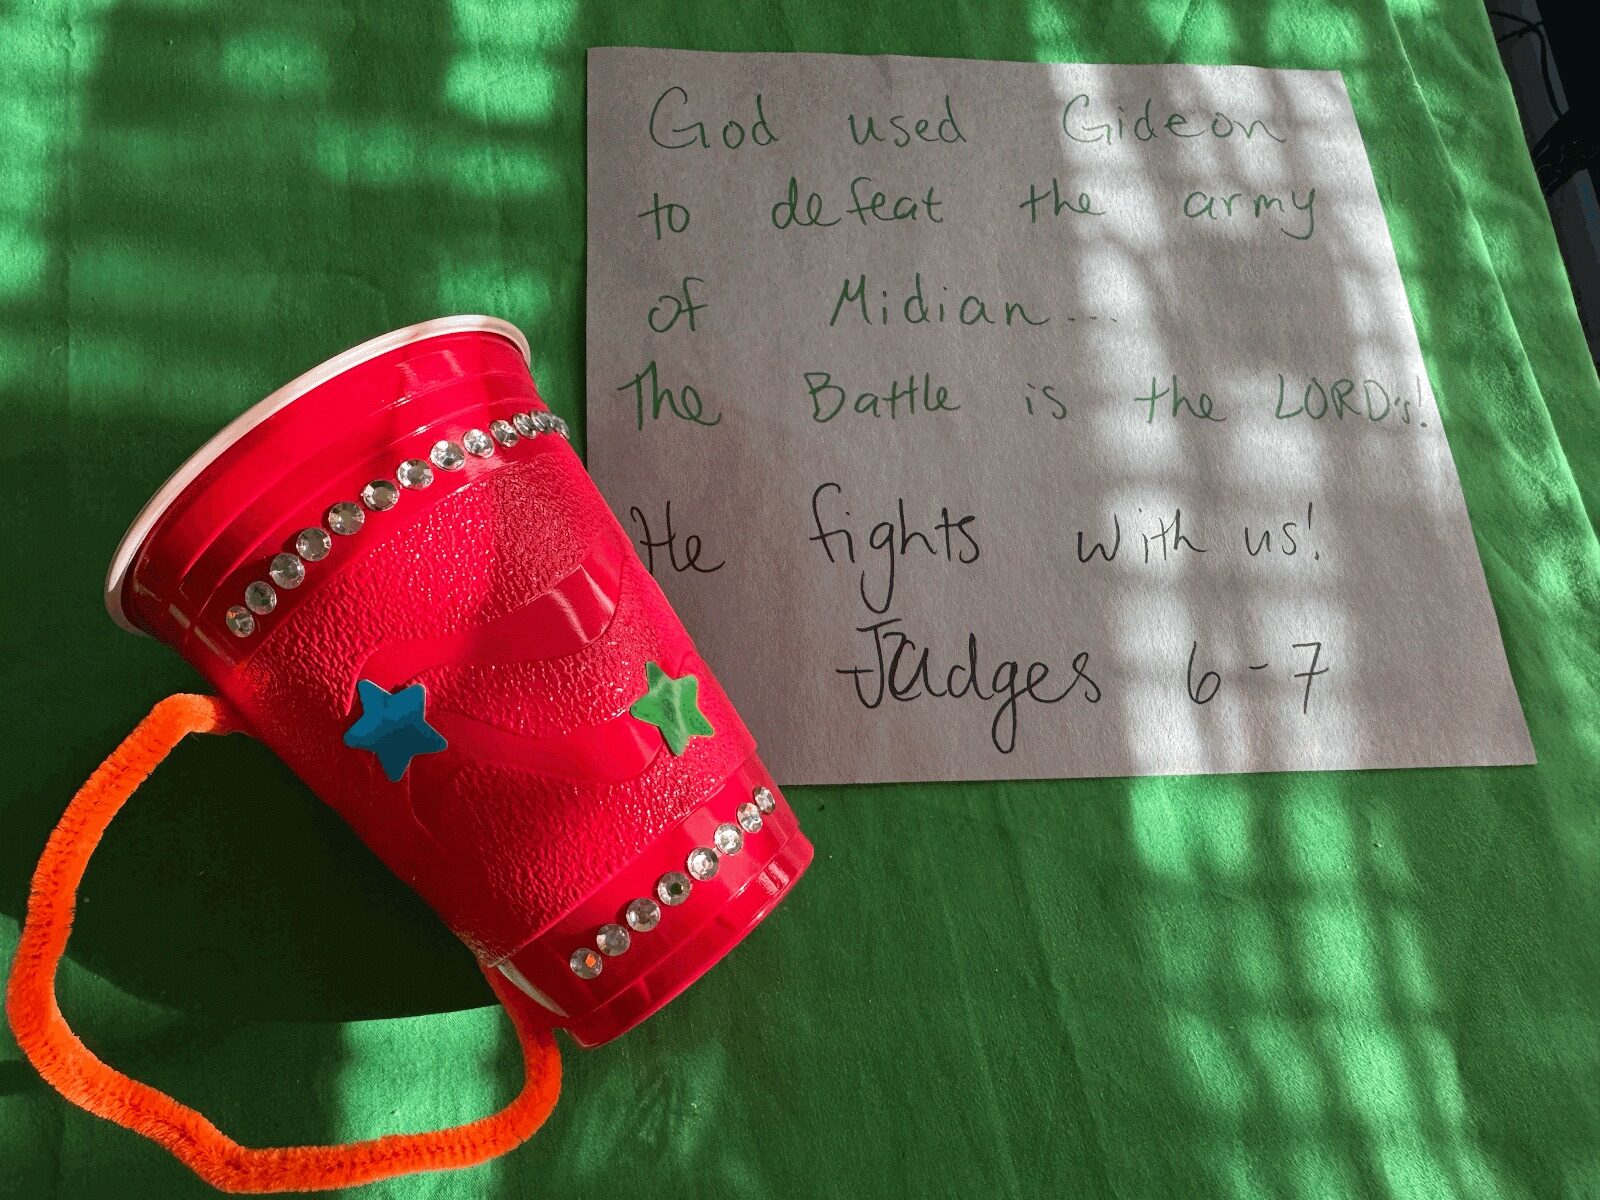 God used Gideon
to defeat the army
of Midian...
The Battle is the LORD's!
He fights with us!
Judges 6-7